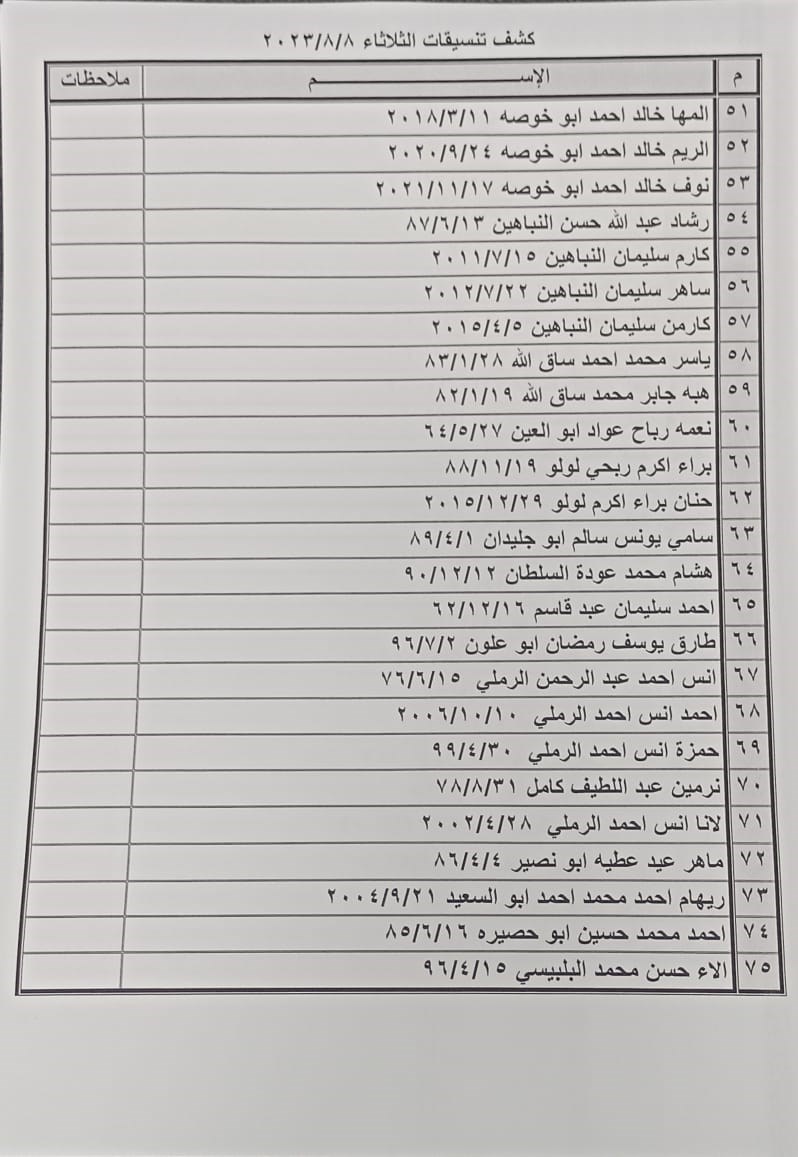 كشف تنسيقات الثلاثاء ٢٠٢٣/٨/٨
م الإســـــــــم ملاحظات
٥١ المها خالد احمد ابو خوصه ٢٠١٨/٣/١١
٥٢ الريم خالد احمد ابو خوصه ٢٠٢٠/٩/٢٤
٥٣ نوف خالد احمد ابو خوصه ٢٠٢١/١١/١٧
٥٤ رشاد عبد الله حسن النباهين ٨٧/٦/١٣
٥٥ كارم سليمان النباهين ٢٠١١/٧/١٥
٥٦ ساهر سليمان النباهين ٢٠١٢/٧/٢٢
٥٧ كارمن سليمان النباهين ٢٠١٥/٤/٥
٥٨ ياسر محمد احمد ساق الله ٨٣/١/٢٨
٥٩ هبه جابر محمد ساق الله ٨٢/١/١٩
٦٠ نعمه رباح عواد ابو العين ٦٤/٥/٢٧
٦١ براء اكرم ربحي لولو ٨٨/١١/١٩
٦٢ حنان براء اكرم لولو ٢٠١٥/١٢/٢٩
٦٣ سامي يونس سالم ابو جليدان ٨٩/٤/١
٦٤ هشام محمد عودة السلطان ٩٠/١٢/١٢
٦٥ احمد سليمان عبد قاسم ٦٢/١٢/١٦
٦٦ طارق يوسف رمضان ابو علون ٩٦/٧/٢
٦٧ انس احمد عبد الرحمن الرملي ٧٦/٦/١٥
٦٨ احمد انس احمد الرملي ٢٠٠٦/١٠/١٠
٦٩ حمزة انس احمد الرملي ٩٩/٤/٣٠
٧٠ نرمين عبد اللطيف كامل ٧٨/٨/٣١
٧١ لانا انس احمد الرملي ٢٠٠٢/٤/٢٨
٧٢ ماهر عيد عطيه ابو نصير ٨٦/٤/٤
٧٣ ريهام احمد محمد احمد ابو السعيد ٢٠٠٤/٩/٢١
٧٤ احمد محمد حسين ابو حصيره ٨٥/٦/١٦
٧٥ الاء حسن محمد البلبيسي ٩٦/٤/١٥